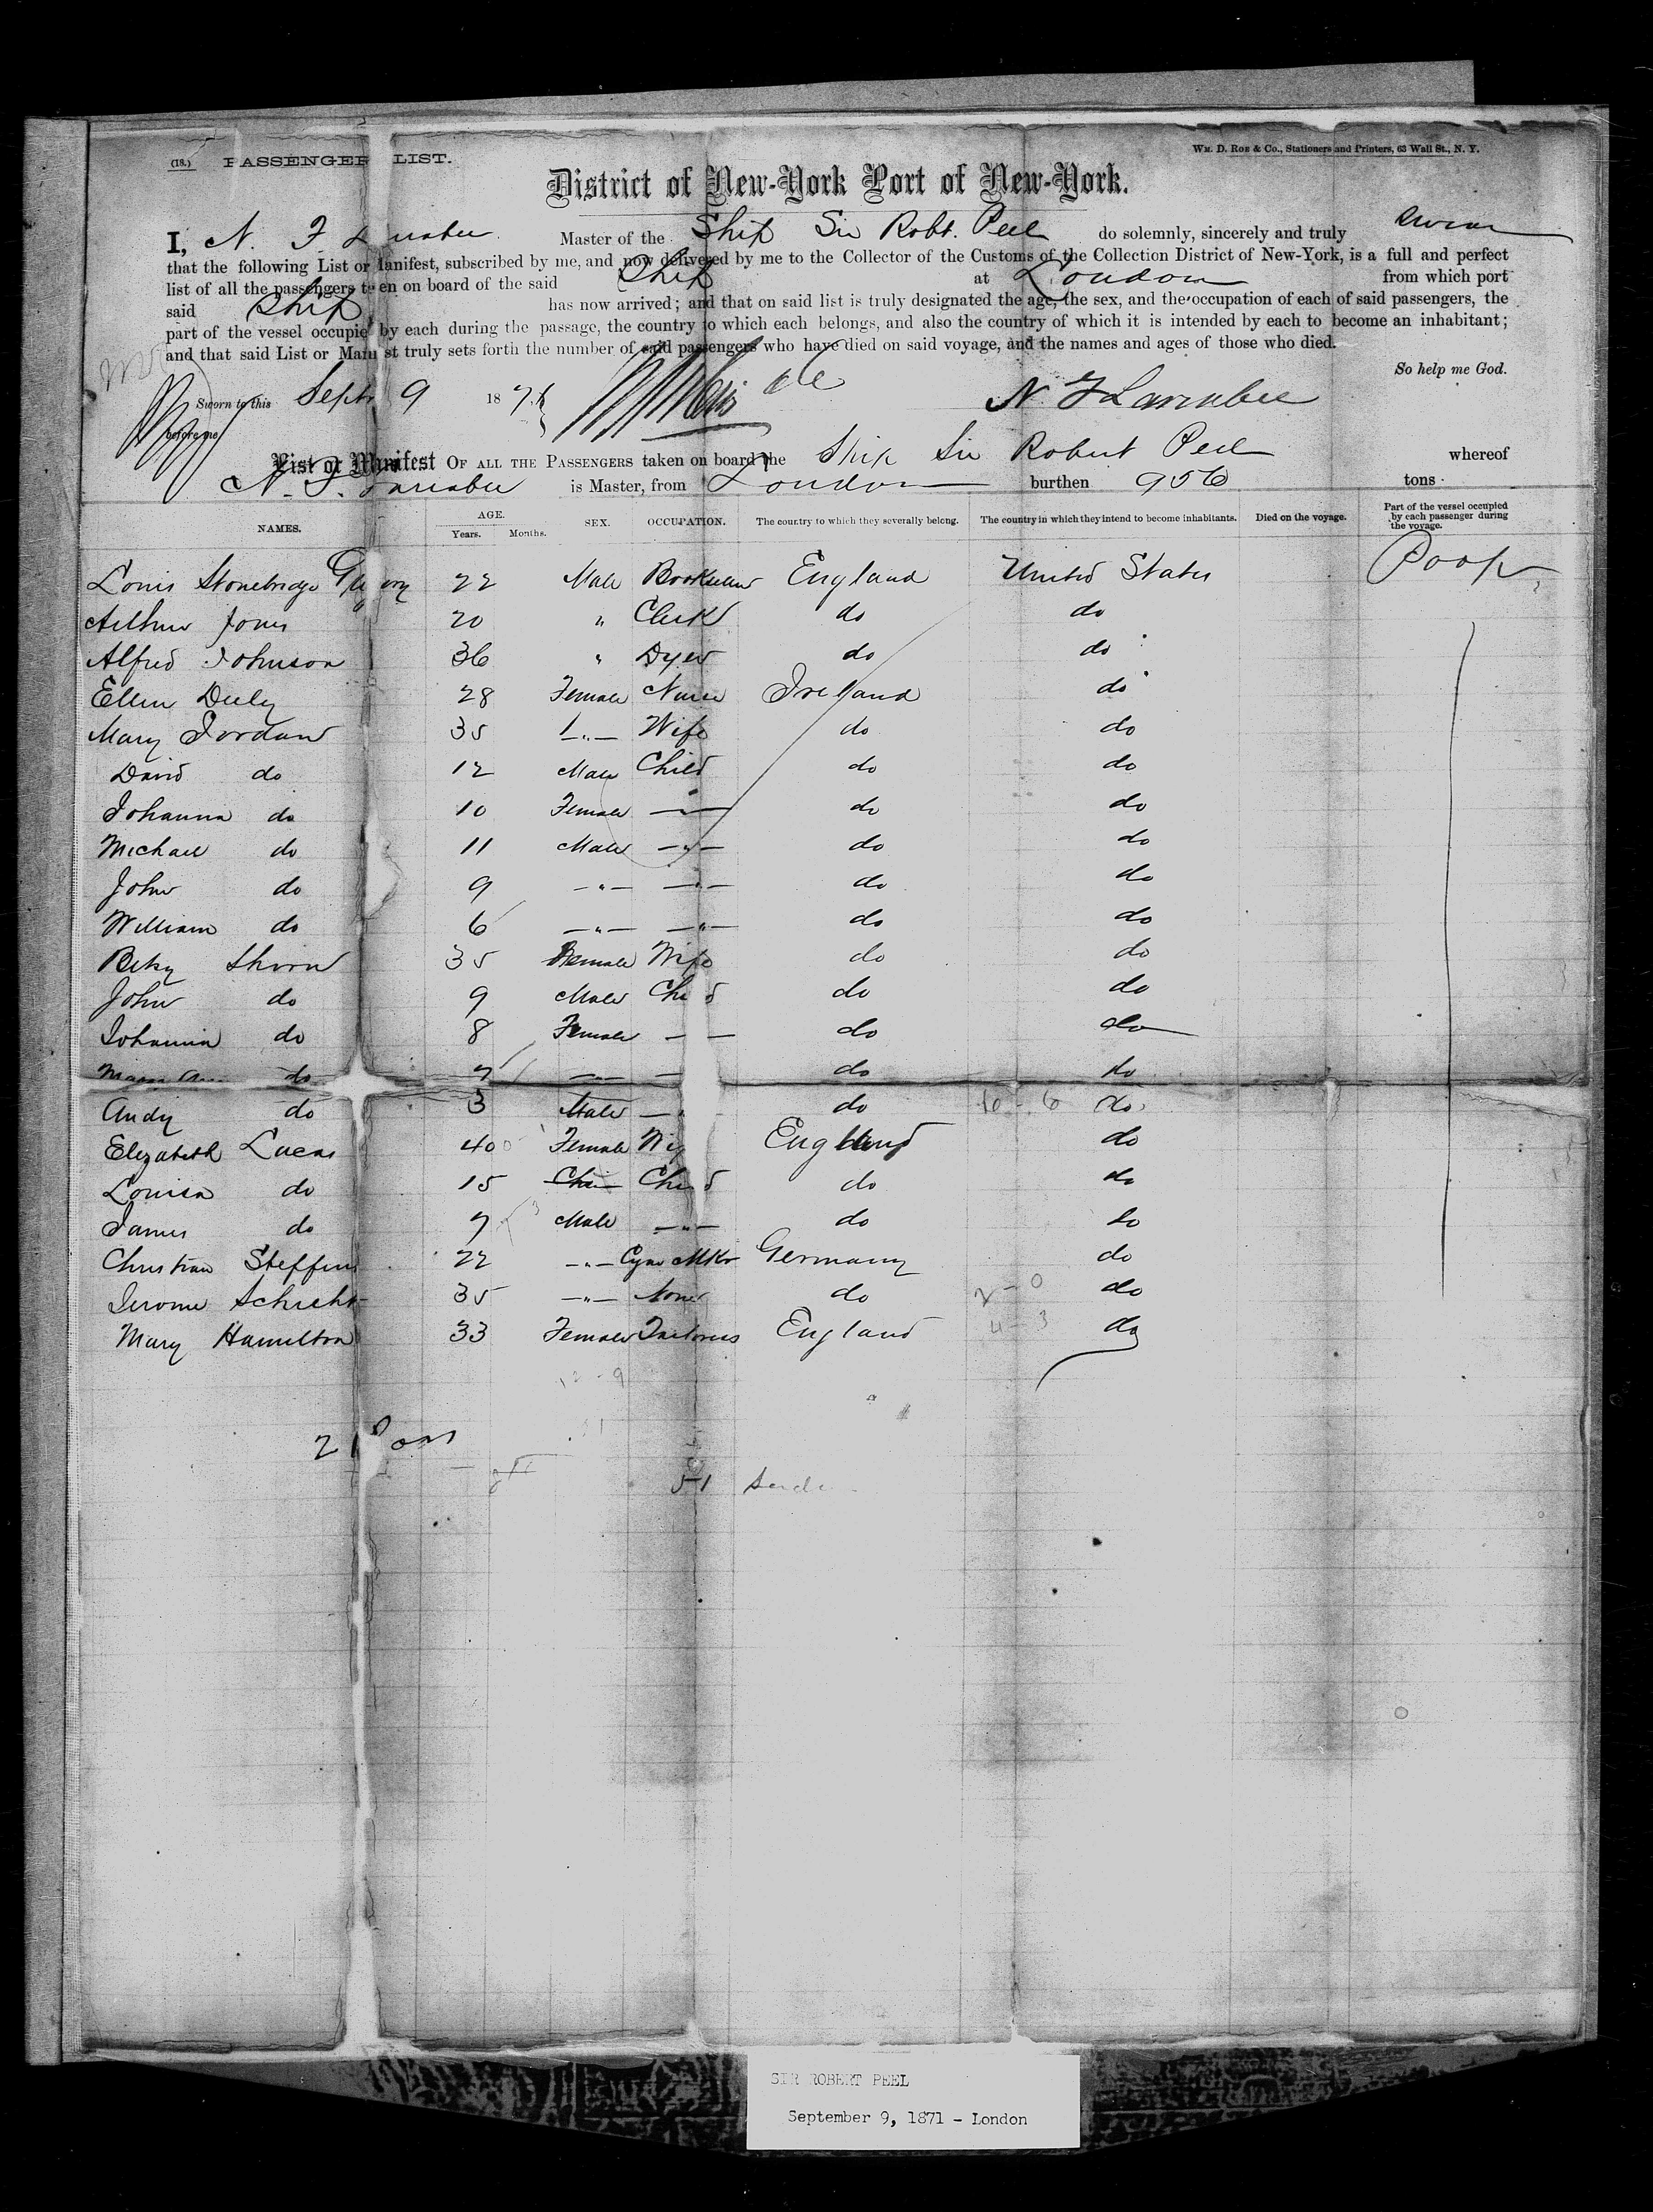 (18.) PASSENGER LIST.
WM. D. ROE & Co., Stationers and Printers, 63 Wall St., N. Y.
District of New-York Port of New-York.
I, N. F. Larrabee Master of the Ship Sir Robt. Peel do solemnly, sincerely and truly swear
that the following List or Manifest, subscribed by me, and now delivered by me to the Collector of the Customs of the Collection District of New-York, is a full and perfect
list of all the passengers taken on board of the said Ship at London from which port
said Ship has now arrived; and that on said list is truly designated the age, the sex, and the occupation of each of said passengers, the
part of the vessel occupied by each during the passage, the country to which each belongs, and also the country of which it is intended by each to become an inhabitant;
and that said List or Manifest truly sets forth the number of said passengers who have died on said voyage, and the names and ages of those who died.
So help me God.
Sworn to this Sept 9 1871 N F Larrabee
before me
List or Manifest OF ALL THE PASSENGERS taken on board the Ship Sir Robert Peel whereof
N. F. Larrabee is Master, from London burthen 956 tons
NAMES. AGE. Years. Months. SEX. OCCUPATION. The country to which they severally belong. The country in which they intend to become inhabitants. Died on the voyage. Part of the vessel occupied by each passenger during the voyage.
Louis Stonebridge 22 Male England United States Poop
Arthur Jones 20 " Clerk do do
Alfred Johnson 36 " Dyer do do
Ellen Duly 28 Female Nurse Ireland do
Mary Jordan 35 " Wife do do
David do 12 Male Child do do
Johanna do 10 Female " do do
Michael do 11 Male " do do
John do 9 " " do do
William do 6 " " do do
Betsy 35 Female Wife do do
John do 9 Male Child do do
Johanna do 8 Female — do do
do 7 — — do do
Andy do 3 Male — do do
Elizabeth Lucas 40 Female Wife England do
Louisa do 15 Child do do
James do 7 Male " do do
Christian Steffins 22 " Germany do
Jerome Schicht 35 " None do do
Mary Hamilton 33 Female Tailoress England do
21 Pass
51
SIR ROBERT PEEL
September 9, 1871 - London